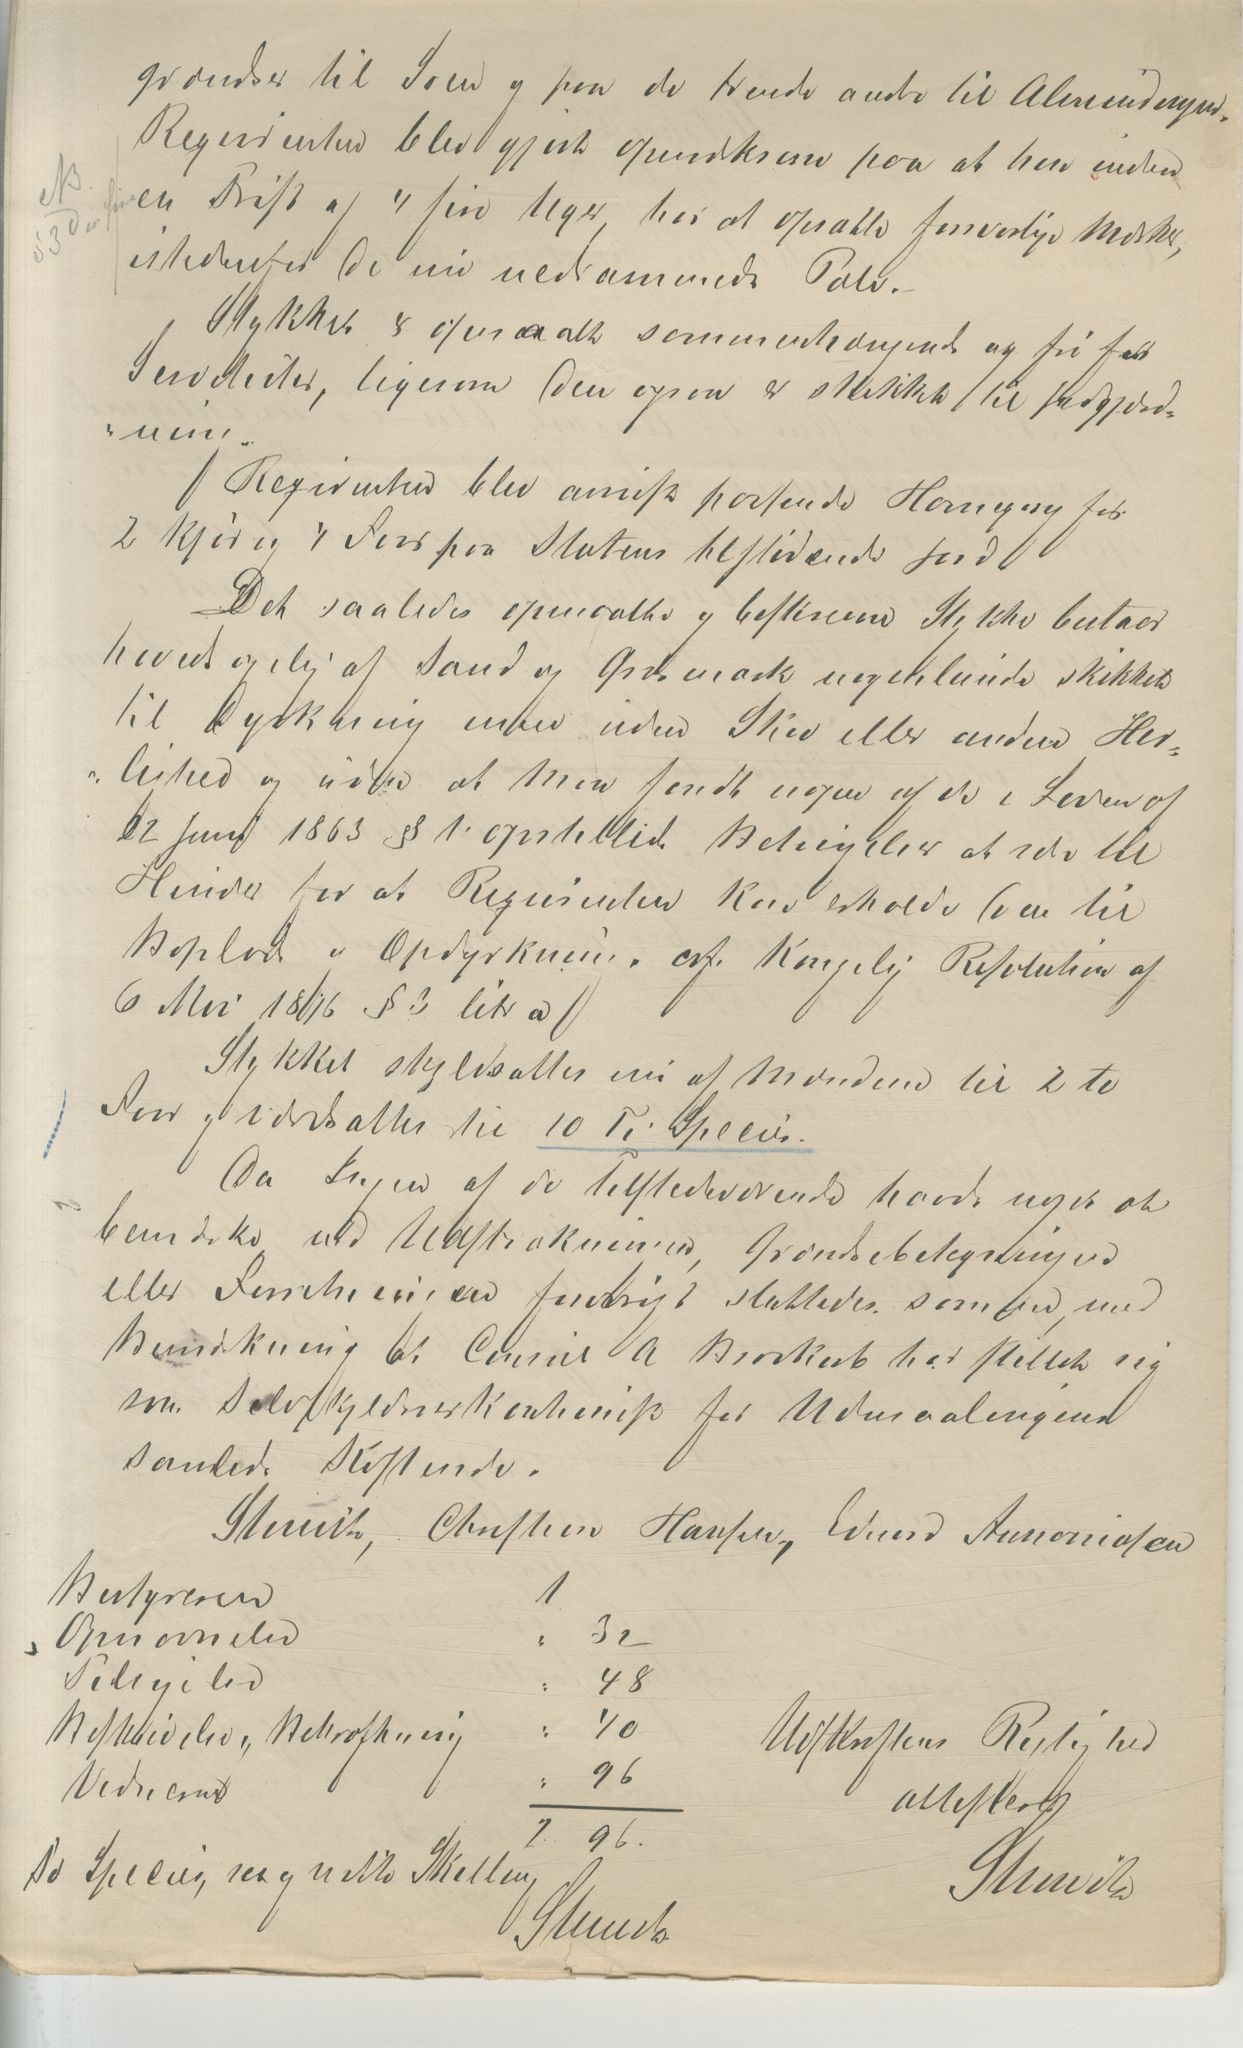 grændser til Søen og paa de trende andre til Almindingen.
Requirenten blev gjort opmærksom paa at han inden
en Frist af 4 fire Uger har at opsætte forsvarlige Mærker,
istedenfor de nu nedrammede Pæle.
Stykket er overalt sammenhængende og fri for
Servituter, ligesom den ogsaa er skikket til Indgjærd-
"ning.
Requirenten blev anvist passende Havnegang for
2 Kjør og 4 Faar paa Statens tilstødende Jord
Det saaledes opmaalte og beskrevne Stykke bestaar
hovedsagelig af Sand og Græsmark nogenlunde skikket
til Dyrkning men uden Skov eller anden Her-
"lighed og uden at man fandt nogen af de i Loven af
22 Juni 1863 § 1. opstillede Betingelser at være til
Hinder for at Requirenten kan erholde den til
Boplads og Opdyrkning. cfr. Kongelig Resolution af
6 Mai 1876 § 3 litr a
Stykket skyldsattes nu af Mændene til 2 to
Øre og værdsattes til 10 Ti Specier.
Da Ingen af de Tilstedeværende havde noget at
bemærke ved Udstrækningen, Grændsebetegningen
eller Forretningen forøvrigt sluttedes samme, med
Bemærkning at Consul A Brockert har stillet sig
som Selvskyldnerkautionist for Udmaalingens
samlede Kostende.
Steinitz, Christian Hansen, Edvard Ammoniasen
Bestyreren 1
Opmaaler " 32
" 48
Beskrivelse, Bekræftning " 40
" 96
2 96.
To Specier, sex og nitti Skilling
Udskriftens Rigtighed
attesteres
NB.
§ 3